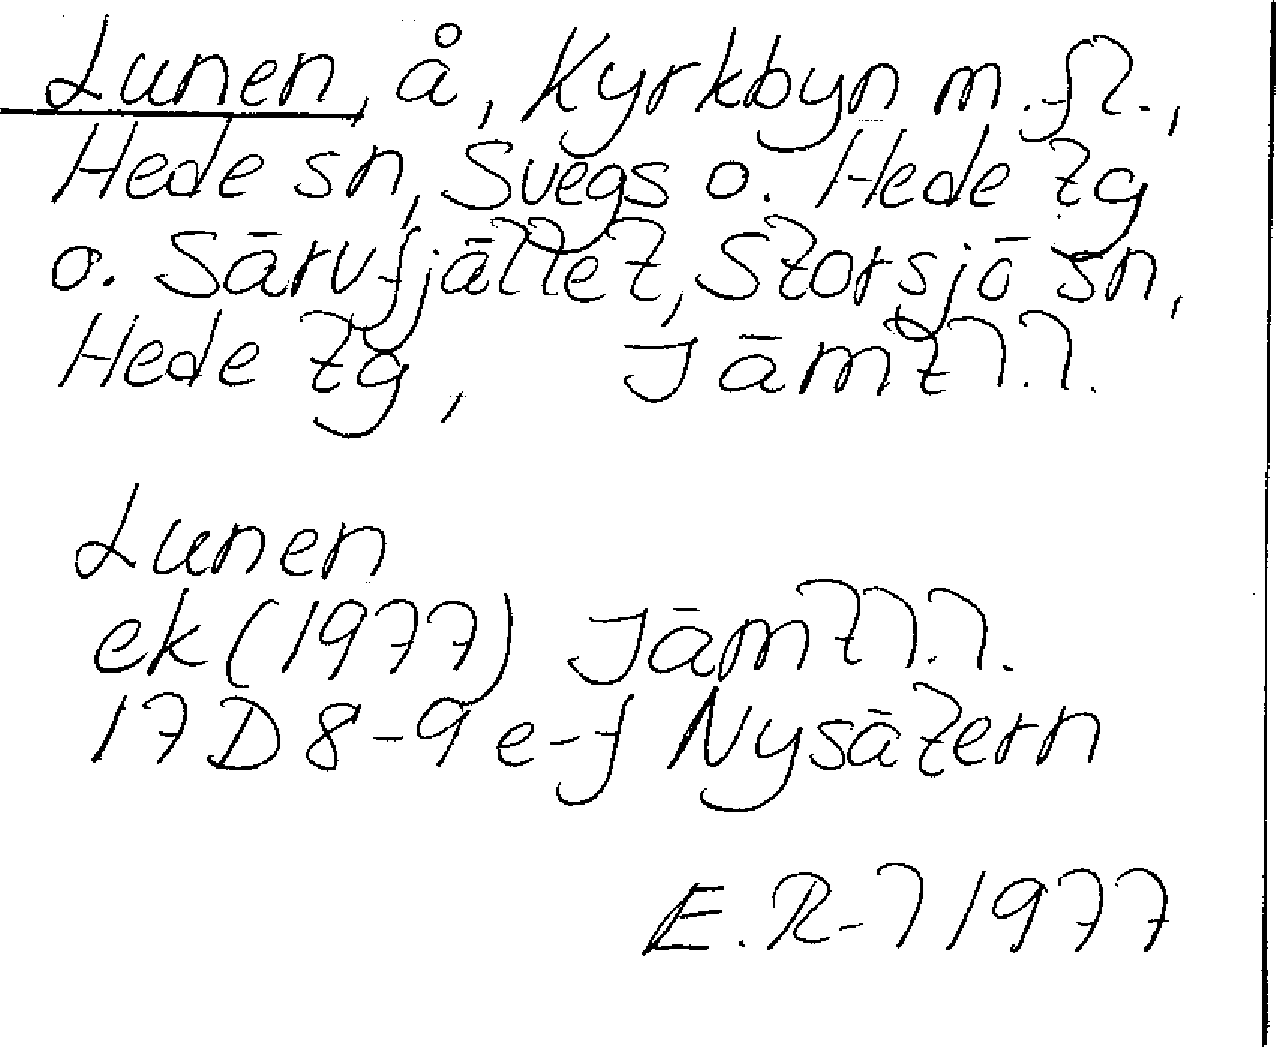 Lunen, å, Kyrkbyn m.fl.,
Hede sn, Svegs o. Hede tg
o. Särvfjället, Storsjö sn,
Hede tg, Jämtl.l.
Lunen
ek (1977) Jämtl.l.
17D 8-9 e-f Nysätern
E.R-l 1977